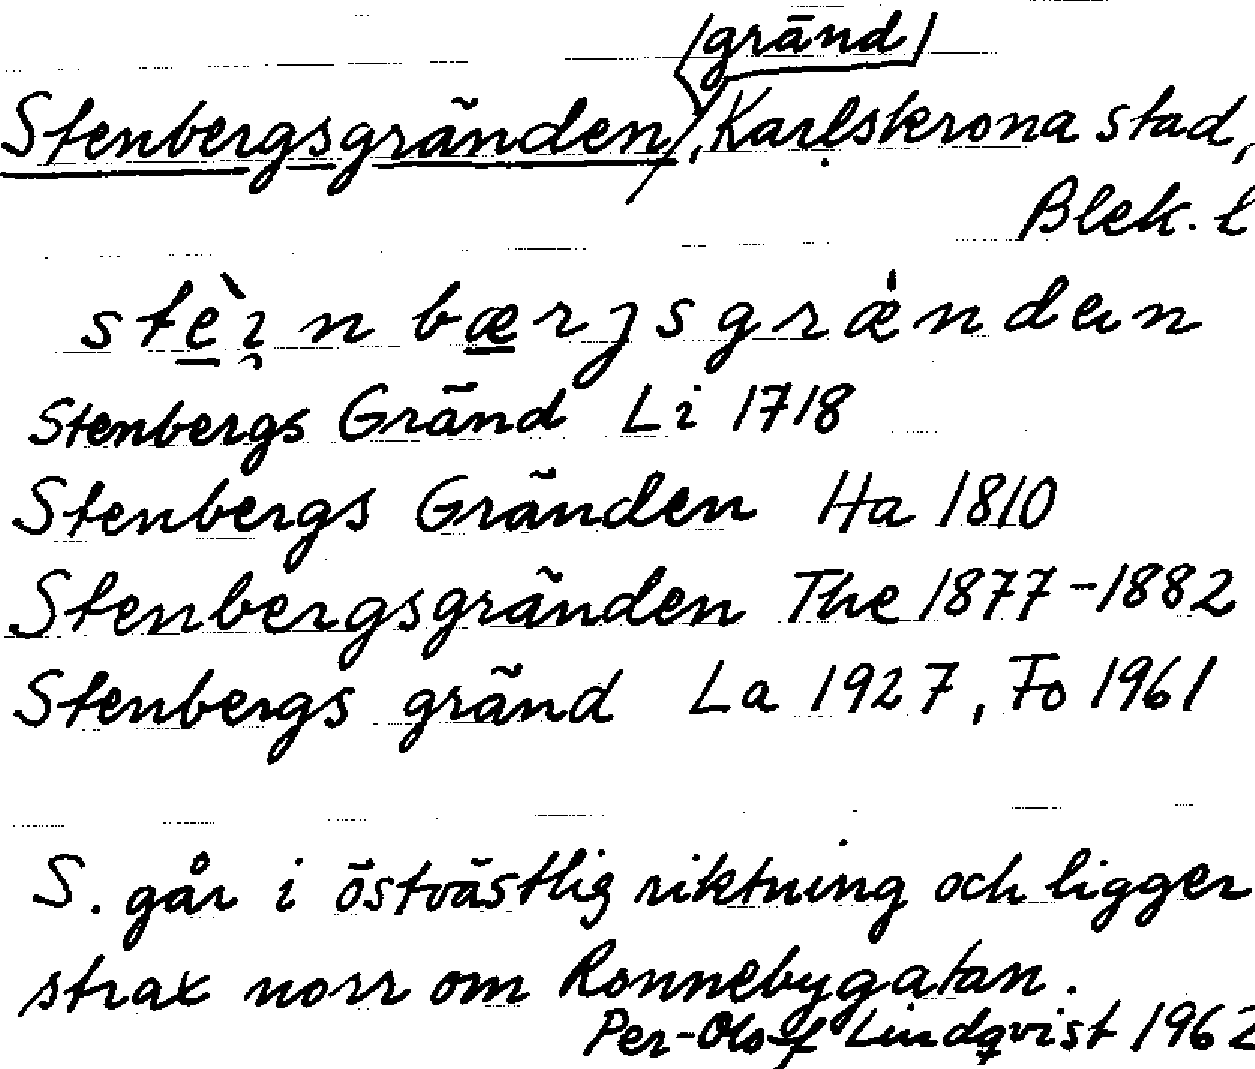 (gränd)
Stenbergsgränden, Karlskrona stad,
Blek. l
stè̱i̯n bæ̱rjsgrǽndən
Stenbergs Gränd Li 1718
Stenbergs Gränden Ha 1810
Stenbergsgränden The 1877-1882
Stenbergs gränd La 1927, Fo 1961
S. går i östvästlig riktning och ligger
strax norr om Ronnebygatan.
Per-Olof Lindqvist 1962